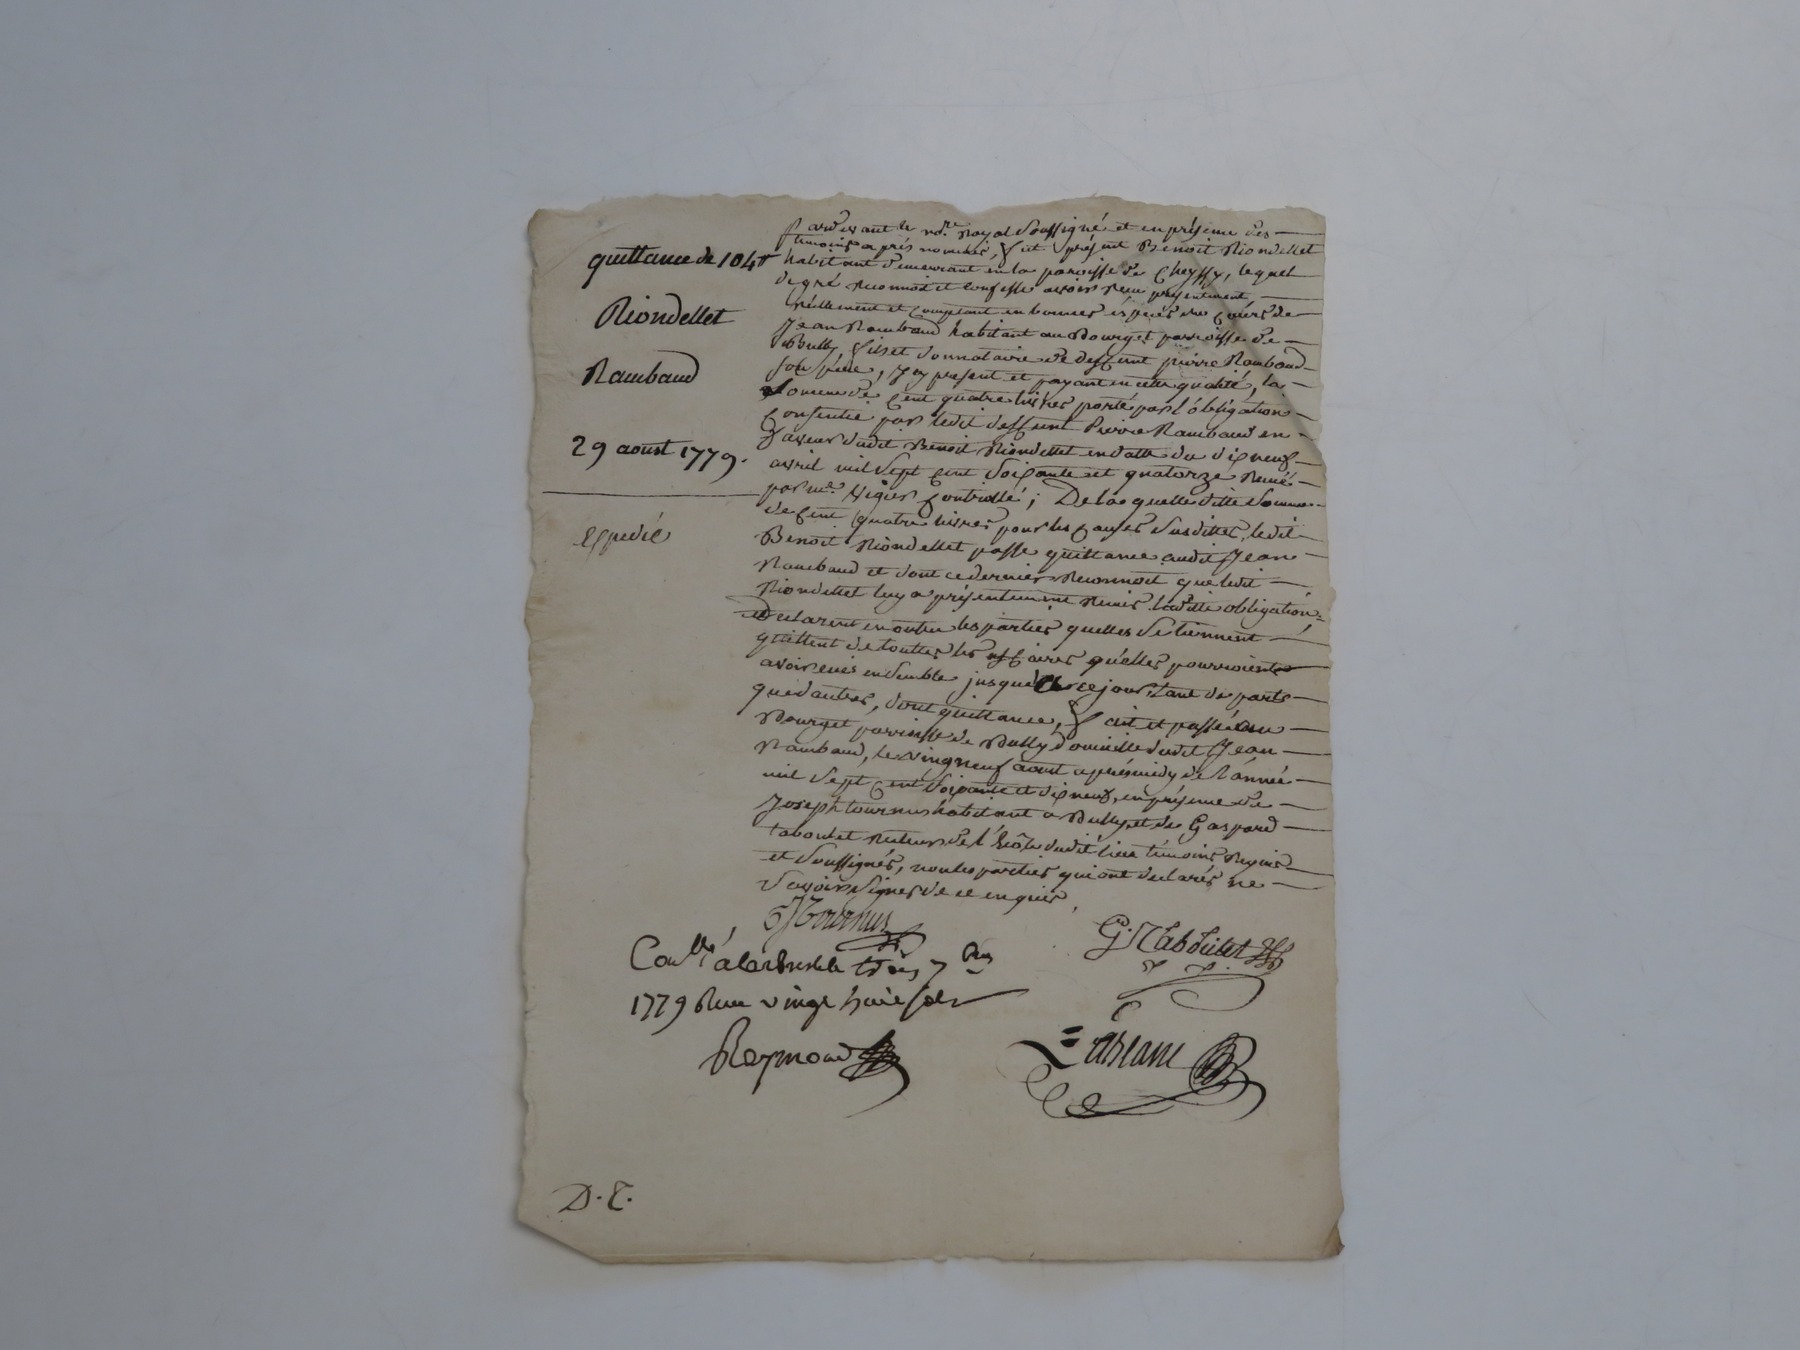 quittance de 104 ₶
Riondellet
Raimbaud
29 aoust 1779.
Expedié
Pardevant le no.re Royal soussigné et en présence des
témoins a près nommés, fut présent Benoit Riondellet
habitant demeurant en la paroisse de Cheyssy, lequel
de gré reconnoit et confesse avoir reçu présentement
réellement et comptant en bonnes éspeces du cours de
Jean Raimbaud habitant au Bourget paroisse de
Bully, fils et donnataire de deffunt pierre Raimbaud
son père, icy present et payant en cette qualité, la
somme de cent quatre livres porté par l'obligation
consentie par ledit deffunt Pierre Raimbaud en
faveur dudit Benoit Riondellet en datte du dix neuf
avril mil sept cent soixante et quatorze Reçue
par me. Vigier controllé; De laquelle ditte somme
de cent quatre livres pour les causes susdittes, ledit
Benoit Riondellet passe quittance audit Jean
Raimbaud et dont ce dernier Reconnoit que ledit
Riondellet luy a présentement Remis laditte obligation,
Declarent en outre les parties quelles se tiennent
quittent de touttes les affaires qu'elles pourroient
avoir eues ensemble jusqu'a ce jour, tant de parts
que d'autres, dont quittance, fait et passé au
Bourget paroisse de Bully domicille dudit Jean
Raimbaud, le vingneuf aoust après midy de l'année
mil sept cent soixante et dix neuf, en présence de
Joseph tournus habitant a Bully, et de Gaspard
taboulet Recteur de l'École dudit lieu témoins Requis
et soussignés, non les parties qui ont declarés ne
savoir signer de ce enquis
J Tournus
G. Taboulet
Con.llé a larbresle trois 7bre
1779 Reçu vingt huit sols
Reymond
D. C.